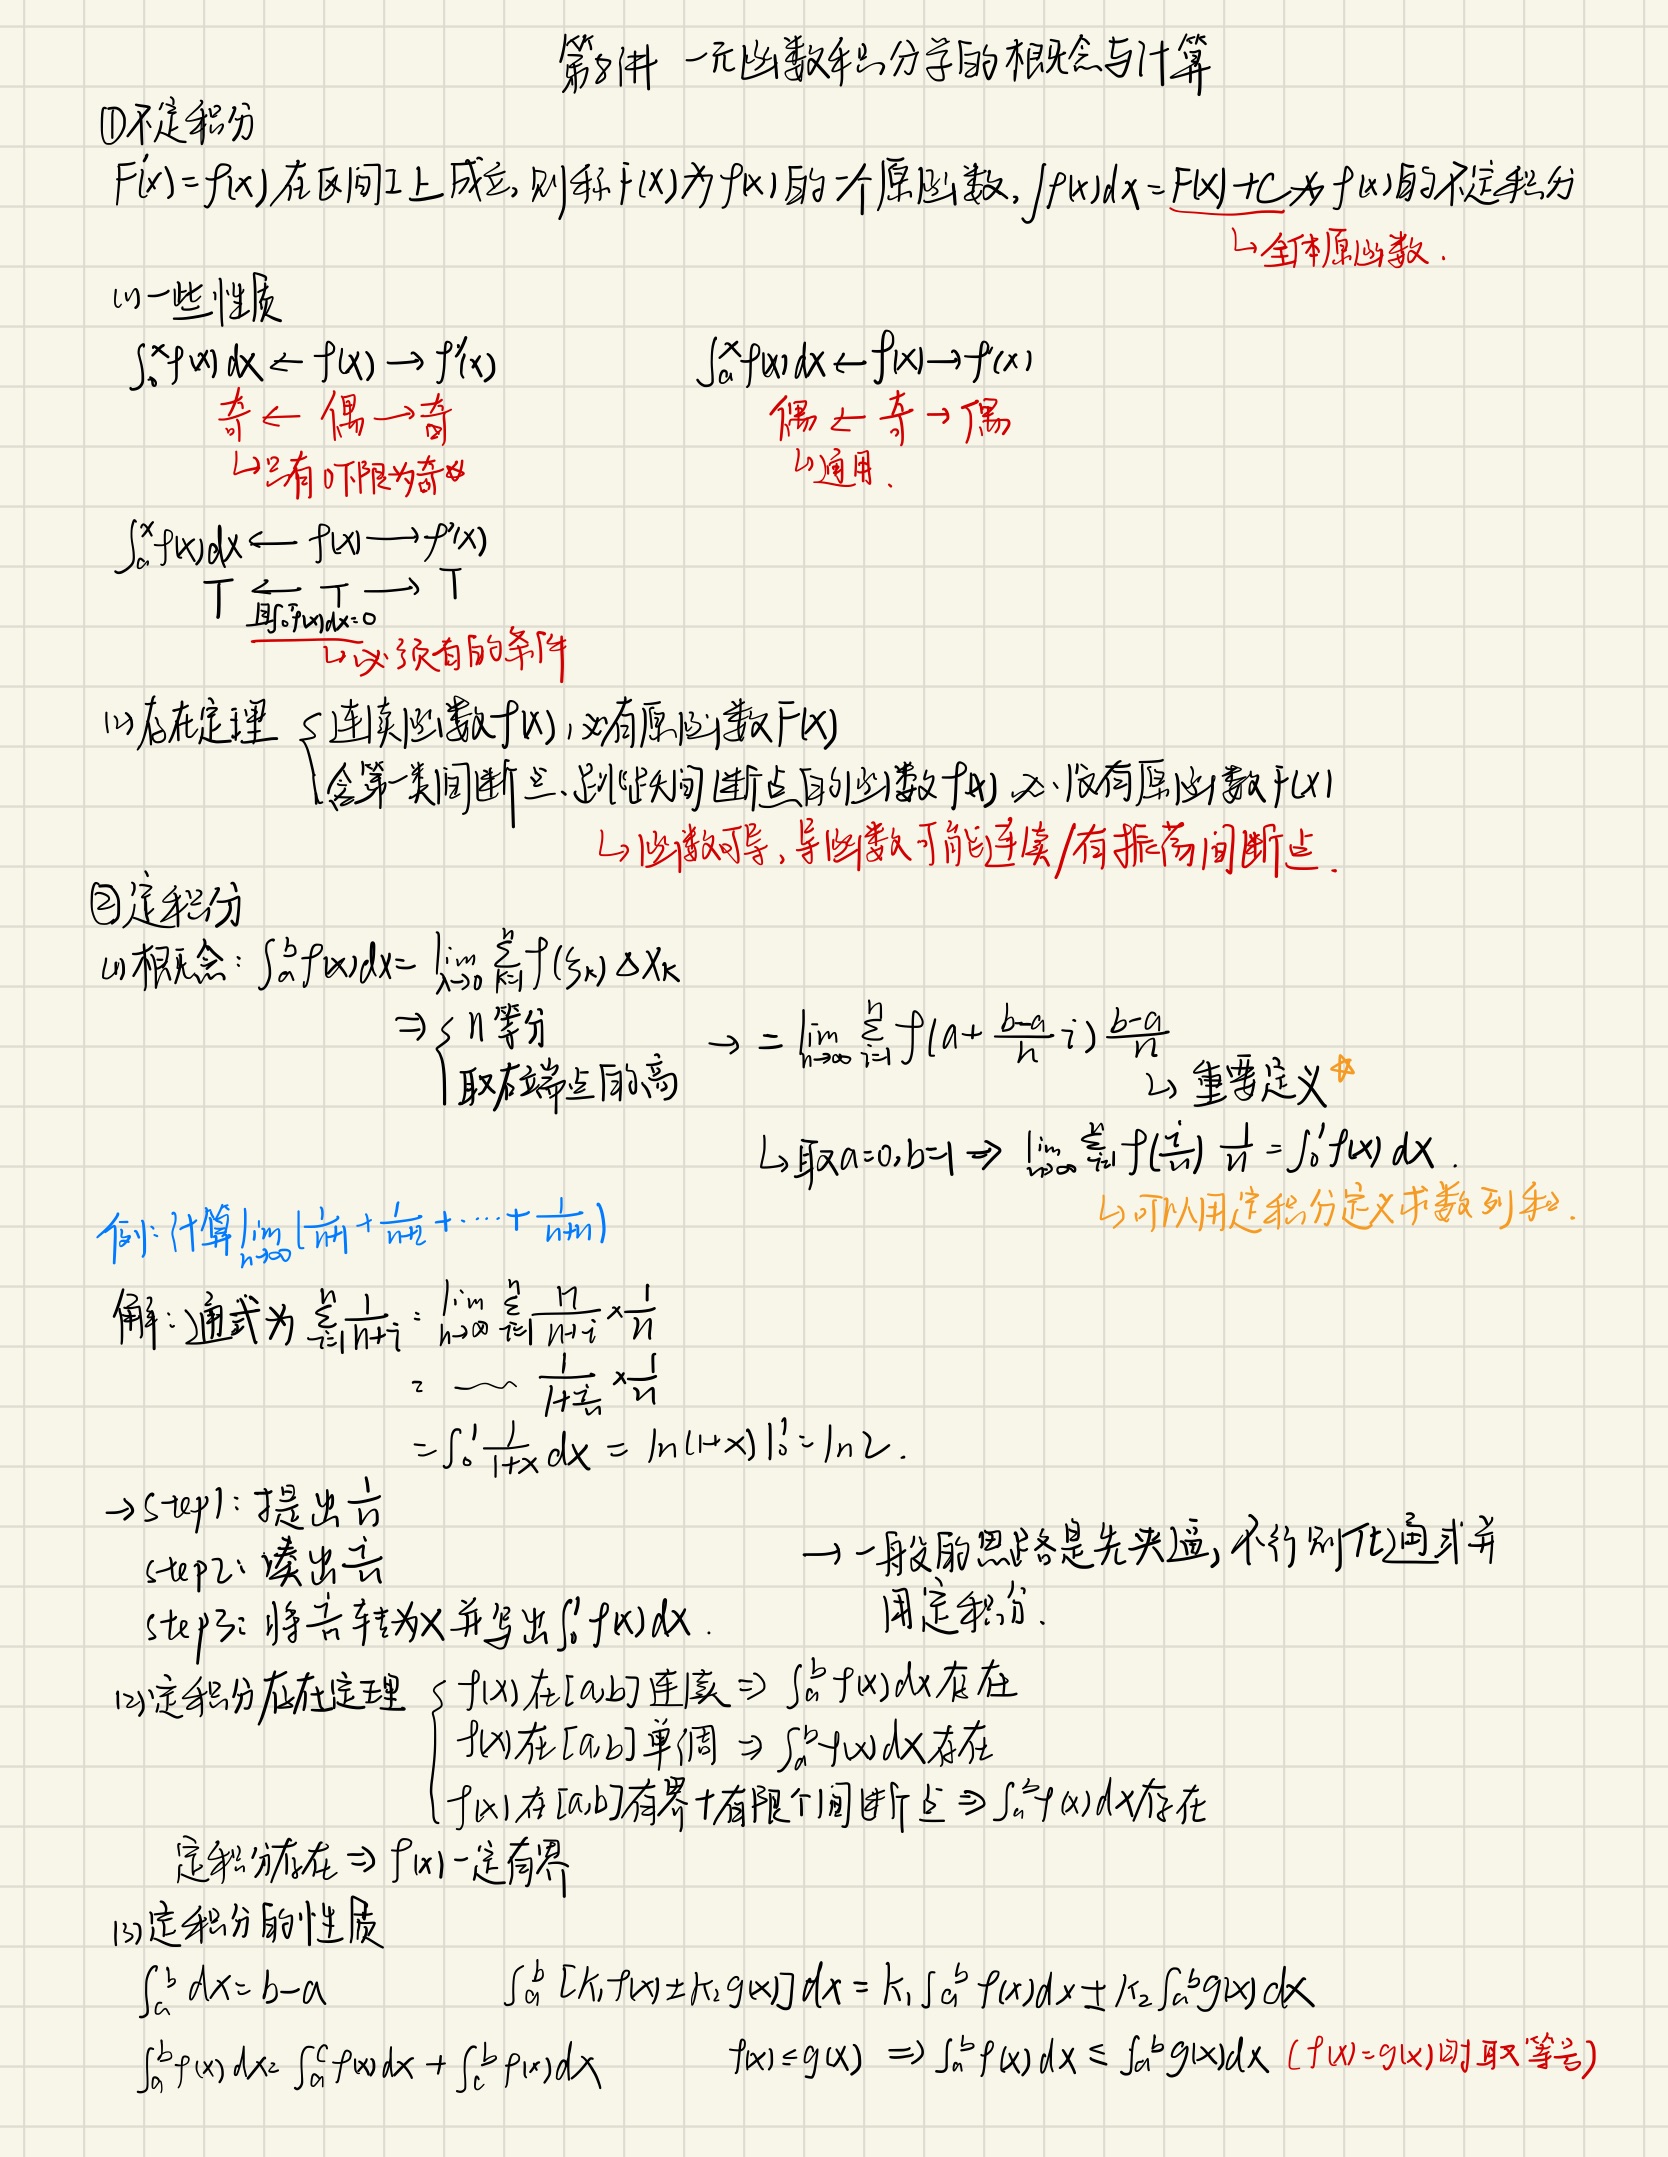 第8讲 一元函数积分学的概念与计算
①不定积分
F'(x)=f(x)在区间I上成立,则称F(x)为f(x)的一个原函数,∫f(x)dx=F(x)+C为f(x)的不定积分
↳全体原函数.
(1)一些性质
∫₀ˣf(x)dx←f(x)→f'(x)
∫ₐˣf(x)dx←f(x)→f'(x)
奇←偶→奇
偶←奇→偶
↳只有0下限为奇☆
↳通用.
∫ₐˣf(x)dx←f(x)→f'(x)
T←T→T
且∫₀ᵀf(x)dx=0
↳必须有的条件
(2)存在定理 { 连续函数f(x),必有原函数F(x)
含第一类间断点、无穷间断点的函数f(x)必没有原函数F(x)
↳函数可导,导函数可能连续/有振荡间断点.
②定积分
(1)概念:∫ₐᵇf(x)dx=lim_{λ→0} Σ_{k=1}^{n} f(ξₖ)ΔXₖ
⇒{ n等分
取右端点的高
→ = lim_{n→∞} Σ_{i=1}^{n} f(a+\frac{b-a}{n}i)\frac{b-a}{n}
↳重要定义☆
↳取a=0,b=1⇒ lim_{n→∞} Σ_{i=1}^{n} f(\frac{i}{n})\frac{1}{n}=∫₀¹f(x)dx.
↳可以用定积分定义求数列和.
例:计算lim_{n→∞}(\frac{1}{n+1}+\frac{1}{n+2}+⋯+\frac{1}{n+n})
解:通式为 Σ_{i=1}^{n}\frac{1}{n+i}=lim_{n→∞} Σ_{i=1}^{n}\frac{n}{n+i}×\frac{1}{n}
= ~~ \frac{1}{1+\frac{i}{n}}×\frac{1}{n}
=∫₀¹\frac{1}{1+x}dx=ln(1+x)|₀¹=ln2.
→step1:提出\frac{1}{n}
step2:凑出\frac{i}{n}
step3:将\frac{i}{n}转为x并写出∫₀¹f(x)dx.
→一般的思路是先夹逼,不行则化通式并
用定积分.
(2)定积分存在定理 { f(x)在[a,b]连续⇒∫ₐᵇf(x)dx存在
f(x)在[a,b]单调⇒∫ₐᵇf(x)dx存在
f(x)在[a,b]有界+有限个间断点⇒∫ₐᵇf(x)dx存在
定积分存在⇒f(x)一定有界
(3)定积分的性质
∫ₐᵇdx=b-a
∫ₐᵇ[k₁f(x)±k₂g(x)]dx=k₁∫ₐᵇf(x)dx±k₂∫ₐᵇg(x)dx
∫ₐᵇf(x)dx=∫ₐᶜf(x)dx+∫_cᵇf(x)dx
f(x)≤g(x) ⇒∫ₐᵇf(x)dx≤∫ₐᵇg(x)dx (f(x)=g(x)时取等号)